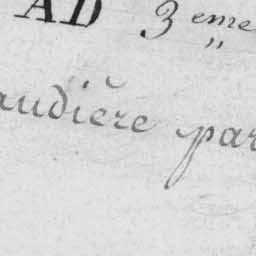 AD 3 eme
audière par